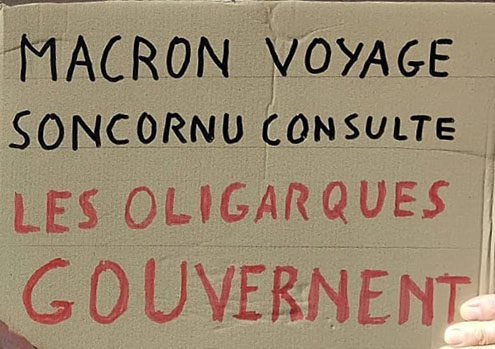 MACRON VOYAGE
SONCORNU CONSULTE
LES OLIGARQUES
GOUVERNENT